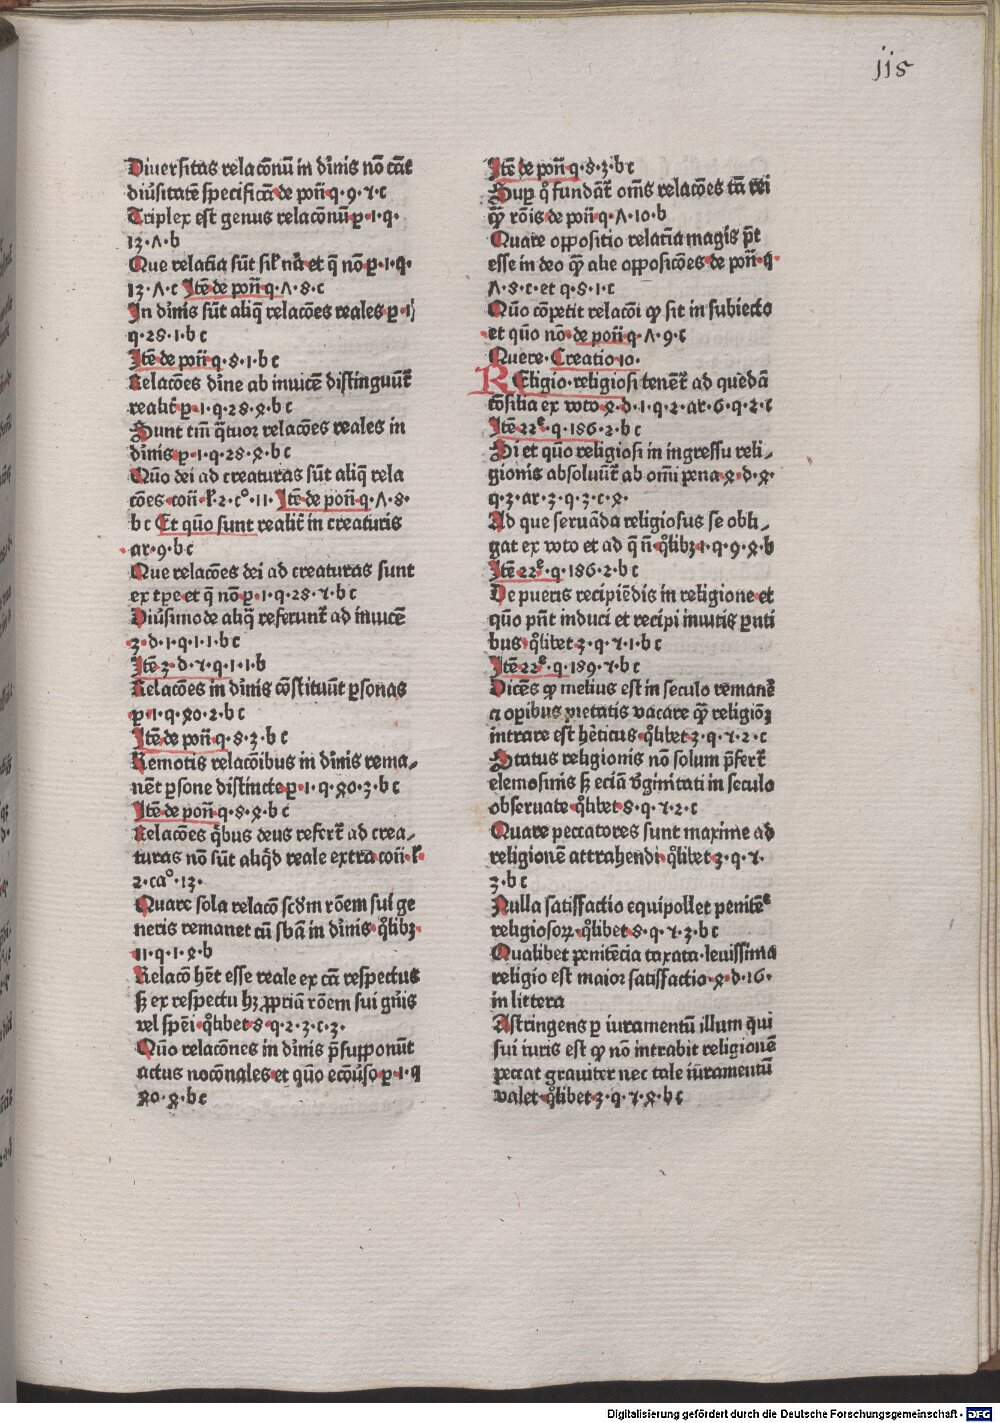 115
Diuersitas relacōnū in dīnis nō cāt
diūsitatē specificā de poñ q·9·7·c
Triplex est genus relacōnū p·1·q·
13·Λ·b
Que relatīa sūt sil' nā et q̄ nō p·1·q·
13·Λ·c Itē de poñ q·Λ·8·c
In dīnis sūt aliq̄ relacōes reales p 1
q·28·1·b c
Itē de poñ q·8·1·b c
Relacōes dīne ab inuicē distinguūt᷑
realit᷑ p·1·q·28·ꝝ·b c
Sunt tm̄ q̄tuor relacōes reales in
dīnis p·1·q·28·ꝝ·b c
Quō dei ad creaturas sūt aliq̄ rela
cōes coñ·l'·2·c°·11· Itē de poñ q·Λ·8·
b c Et quō sunt realit᷑ in creaturis
ar·9·b c
Que relacōes dei ad creaturas sunt
ex tꝑe et q̄ nō p·1·q·28·7·b c
Diūsimode aliq̄ referunt᷑ ad inuicē
3·d·1·q·1·1·b c
Itē 3·d·7·q·1·1·b
Relacōes in dīnis cōstituūt ꝑsonas
p·1·q·ꝝ0·2·b c
Itē de poñ q·8·3·b c
Remotis relacōibus in dīnis rema⸗
nēt ꝑsone distincte p·1·q·ꝝ0·3·b c
Itē de poñ q·8·ꝝ·b c
Relacōes q̄bus deus refert᷑ ad crea⸗
turas nō sūt aliq̄d reale extra coñ·l'·
2·ca°·13·
Quare sola relacō scd'm rōem sui ge
neris remanet cū sbā in dīnis q°libꝫ·
11·q·1·ꝝ·b
Relacō hēt esse reale ex cā respectus
sꝫ ex respectu hꝫ ꝓpriā rōem sui gn̄is
vel spēi q°libet 8·q·2·3·c·3·
Quō relacōnes in dīnis p̄supponūt
actus nocōnales et quō ecōūso p·1·q
ꝝ0·ꝝ·b c
Itē de poñ q·8·3·b c
Suꝑ q° fundāt᷑ om̄s relacōes tā rei
qꝫ rōis de poñ q·Λ·10·b
Quare oppositio relatīa magis p̄t
esse in deo qꝫ alie opposicōes de poñ q·
Λ·8·c·et q·8·1·c
Quō cōpetit relacōi ꝙ sit in subiecto
et quō nō de poñ q·Λ·9·c
Quere·Creatio 10·
REligio·religiosi tenēt᷑ ad quedā
cōsilia ex voto ꝝ·d·1·q·2·ar·6·q·2·c
Itē 22ᵉ·q·186·2·b c
Si et quō religiosi in ingressu reli⸗
gionis absoluūt᷑ ab om̄i pena ꝝ·d·ꝝ·
q·3·ar·3·q·3·c·ꝝ·
Ad que seruāda religiosus se obli⸗
gat ex voto et ad q̄ ñ q°libꝫ 1·q·9·ꝝ·b
Itē 22ᵉ·q·186·2·b c
De pueris recipiēdis in religione et
quō pn̄t induci et recipi inuitis ꝑnti
bus q°libet 3·q·7·1·b c
Itē 22ᵉ·q·189·7·b c
Dicēs ꝙ melius est in seculo remanē
ꞇ opibus pietatis vacare qꝫ religiōꝫ
intrare est hēticus q°libet 3·q·7·2·c
Status religionis nō solum p̄fert᷑
elemosinis sꝫ eciā v'ginitati in seculo
obseruate q°libet 8·q·7·2·c
Quare peccatores sunt maxime ad
religionē attrahendi q°libet 3·q·7·
3·b c
Nulla satisfactio equipollet penitēᵉ
religiosoꝝ q°libet 8·q·7·3·b c
Qualibet penitēcia taxata·leuissima
religio est maior satisfactio ꝝ·d·16·
in littera
Astringens ꝑ iuramentū illum qui
sui iuris est ꝙ nō intrabit religionē
peccat grauiter nec tale iūramentū
valet q°libet 3·q·7·ꝝ·b c
Digitalisierung gefördert durch die Deutsche Forschungsgemeinschaft - DFG